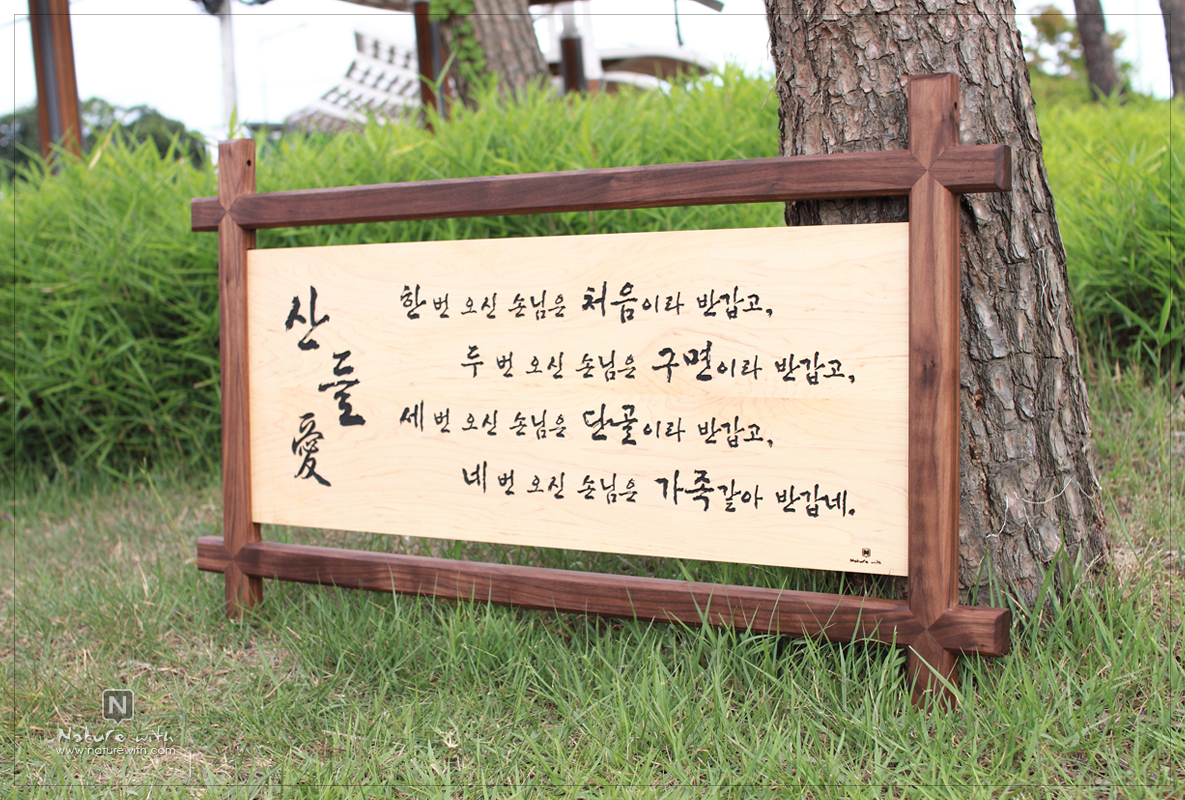 산들愛
한 번 오신 손님은 처음이라 반갑고,
두 번 오신 손님은 구면이라 반갑고,
세 번 오신 손님은 단골이라 반갑고,
네 번 오신 손님은 가족같아 반갑네.
N
Nature with
N
Nature with
www.naturewith.com